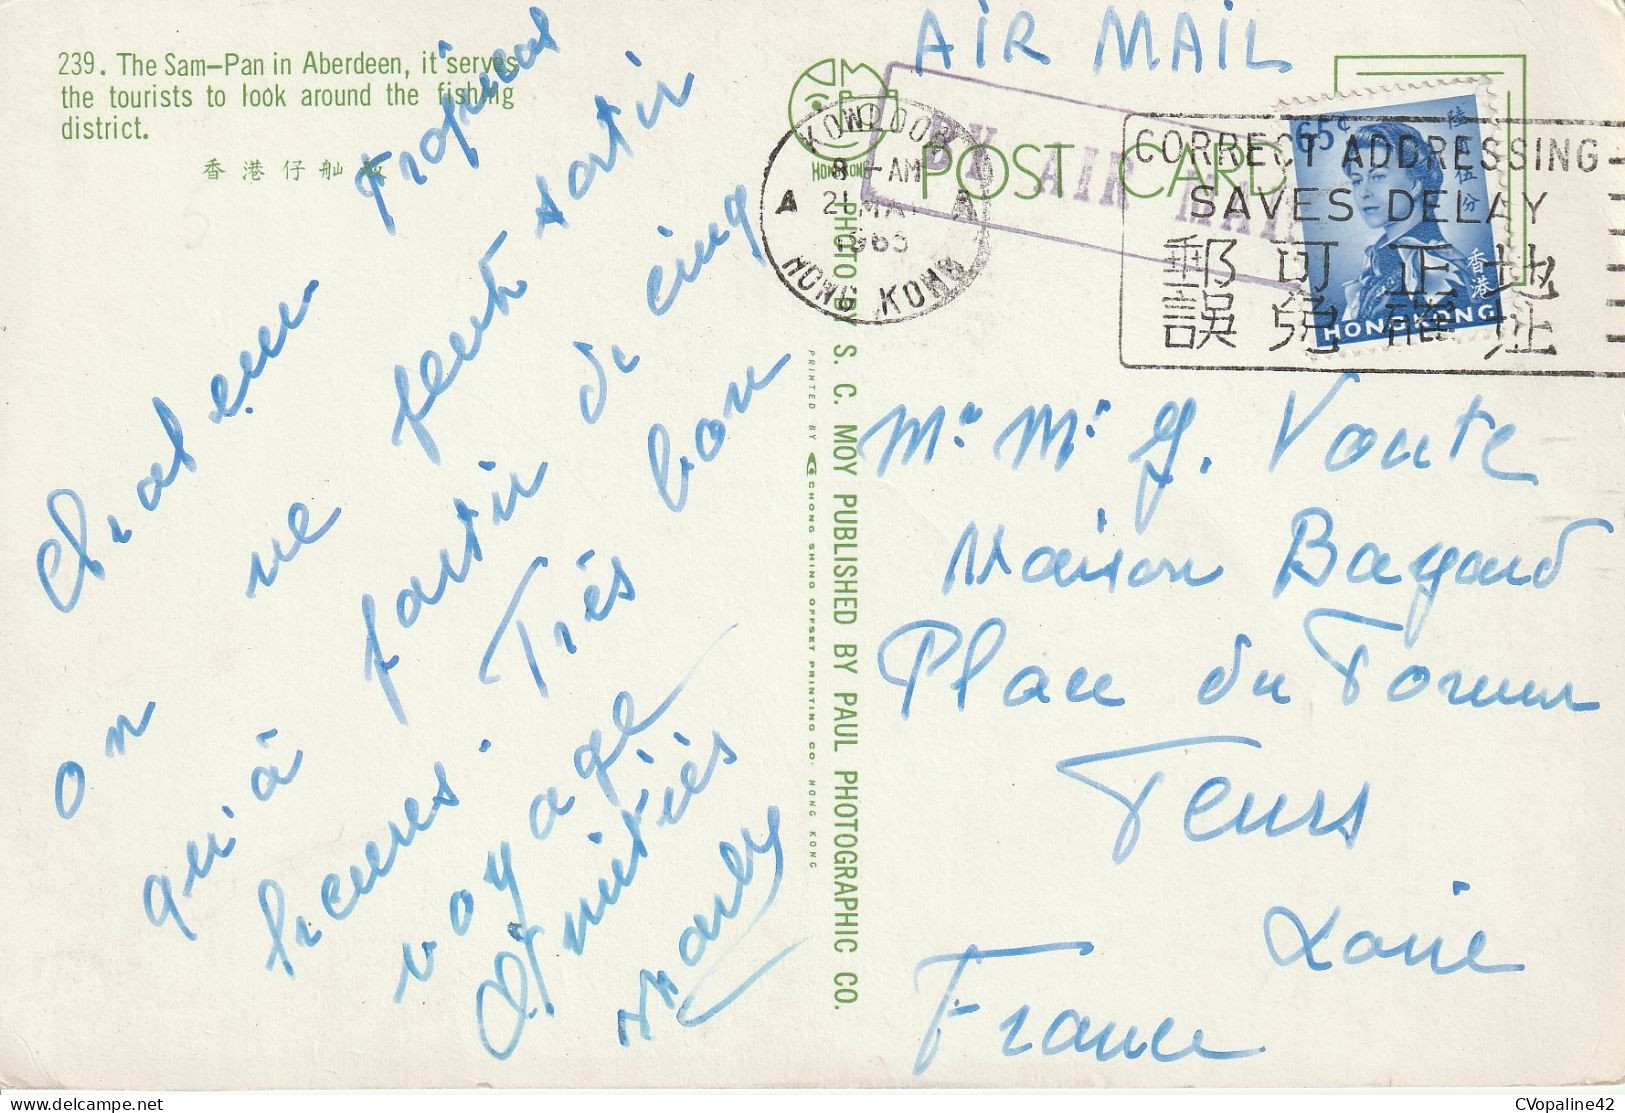 239. The Sam-Pan in Aberdeen, it serves
the tourists to look around the fishing
district.
香港仔舢
Chaleur tropical
on ne peut sortir
qu'à partir de cinq
heures. Très bon
voyage
Amitiés
AIR MAIL
HONG KONG
POST CARD
BY AIR MAIL
KOWLOON
8 - AM
A 21 MA A
HONG KONG
CORRECT ADDRESSING
SAVES DELAY
郵可正地
誤免確址
65¢
陸伍分
香港
HONG KONG
PHOTO BY S. C. MOY PUBLISHED BY PAUL PHOTOGRAPHIC CO.
PRINTED BY CHONG SHING OFFSET PRINTING CO. HONG KONG
Mr Mr J. Voute
Maison Bayard
Place du Forum
Feurs
Loire
France
CVopaline42